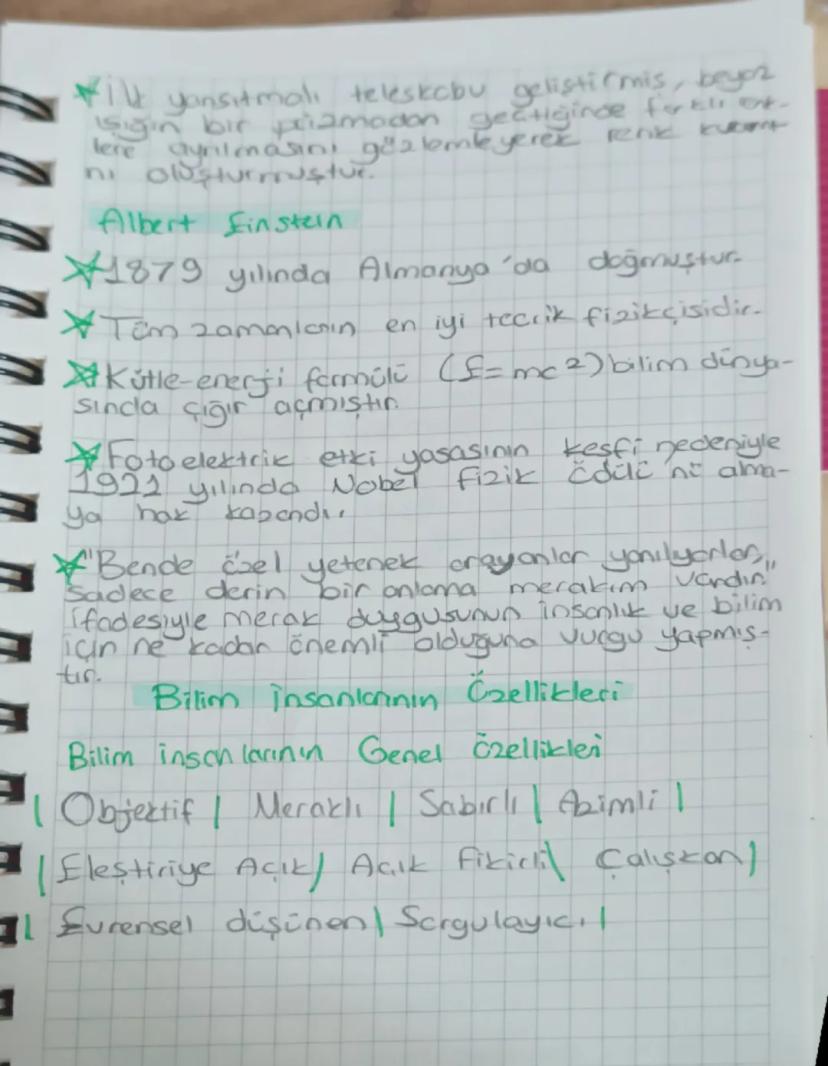 ☆ İlk yansıtmalı teleskobu geliştirmiş, beyaz
ışığın bir prizmadan geçtiğinde farklı
lere ayrılmasını gözlemleyerek renk
nı oluşturmuştur.
Albert Einstein
☆ 1879 yılında Almanya'da doğmuştur.
☆ Tüm zamanların en iyi teorik fizikçisidir.
☆ Kütle-enerji formülü (E=mc²) bilim dünya-
sında çığır açmıştır.
☆ Fotoelektrik etki yasasının keşfi nedeniyle
1921 yılında Nobel fizik ödülü nü alma-
ya hak kazandı.
☆ "Bende özel yetenek arayanlar yanılıyorlar,
sadece derin bir anlama merakım vardır"
ifadesiyle merak duygusunun insanlık ve bilim
için ne kadar önemli olduğuna vurgu yapmış-
tır.
Bilim insanlarının Özellikleri
Bilim insanlarının Genel özellikleri
| Objektif | Meraklı | Sabırlı | Azimli |
| Eleştiriye Açık | Açık Fikirli | Çalışkan |
| Evrensel düşünen | Sorgulayıcı |